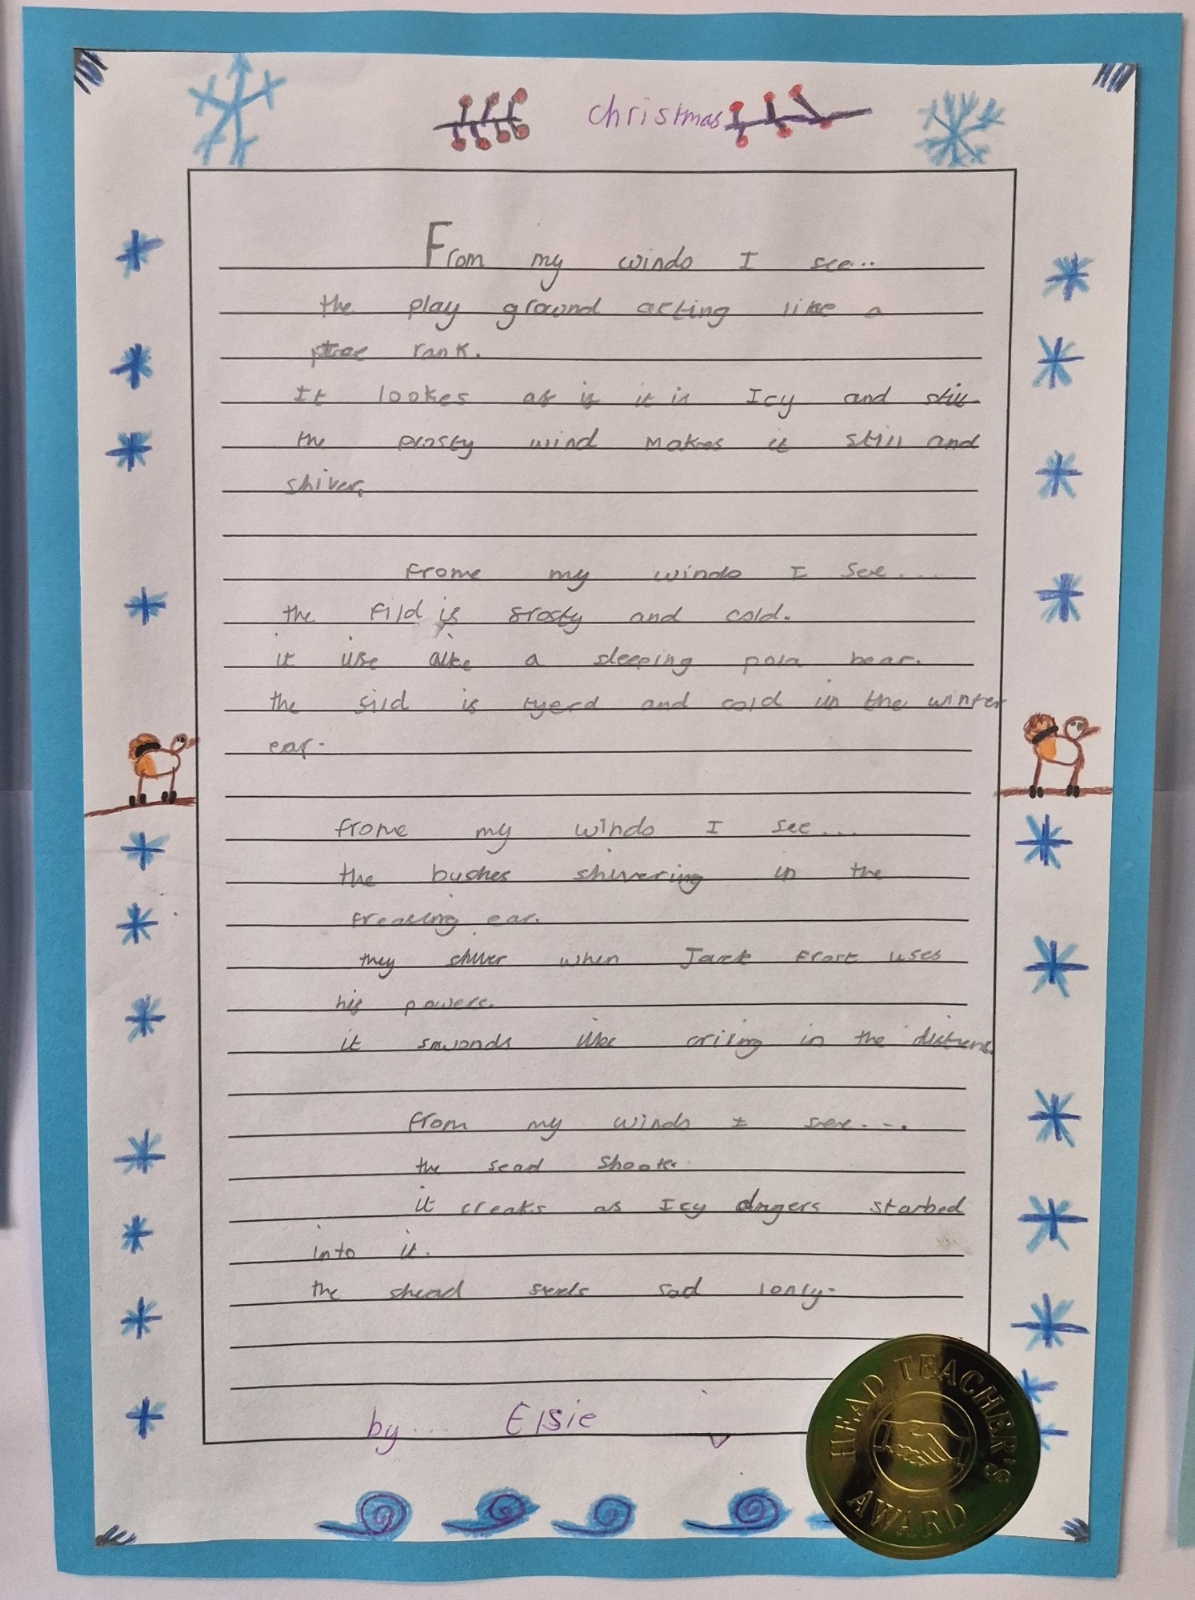 christmas
From my windo I see...
the play ground acting like a
rank.
It lookes as is it is Icy and still
the frosty wind makes it still and
shiver,
Frome my windo I see....
the Fild is frosty and cold.
it like a sleeping pola bear.
the fild is tyerd and cold in the winter
ear.
frome my windo I see...
the bushes shivering in the
freasing ear.
they shiver when Jack Frost uses
his powers.
it smonds like criing in the distens
from my windo I see....
the shook.
it creaks as Icy dagers stabed
into it.
the shead feels sad lonly.
by.... Elsie
HEAD TEACHER'S
AWARD